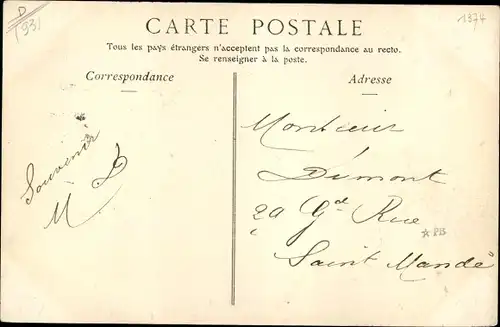 D
(93)
1374
CARTE POSTALE
Tous les pays étrangers n'acceptent pas la correspondance au recto.
Se renseigner à la poste.
Correspondance
Adresse
Souvenir
M D
Monsieur
Dumont
29 Gde Rue
Saint Mandé
PB